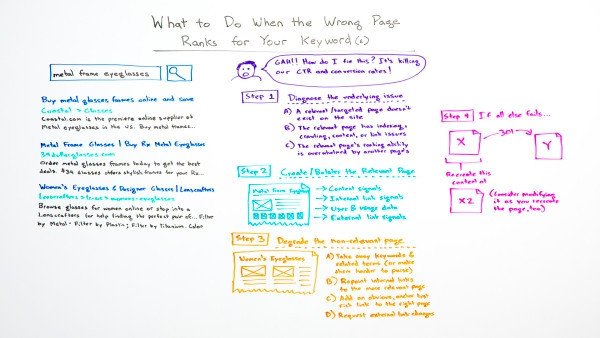 What to Do When the Wrong Page
Ranks for Your Keyword(s)
metal frame eyeglasses
GAH!! How do I fix this? It's killing
our CTR and conversion rates!
Buy metal glasses frames online and save
Coastal > Glasses
Coastal.com is the premiere online supplier of
Metal eyeglasses in the US. Buy metal frames...
Metal Frame Glasses | Buy Rx Metal Eyeglasses
39dollarglasses.com
Order metal glasses frames today to get the best
deals. $39 glasses offers stylish frames for your Rx...
Women's Eyeglasses & Designer Glasses | Lenscrafters
Lenscrafters > lenses > womens-eyeglasses
Browse glasses for women online or stop into a
Lenscrafters for help finding the perfect pair of... Filter
by Metal - Filter by Plastic; Filter by Titanium. Color
Step 1 Diagnose the underlying issue
A) A relevant/targeted page doesn't
exist on the site
B) The relevant page has indexing,
crawling, content, or link issues
C) The relevant page's ranking ability
is overwhelmed by another page's
Step 2 Create/Bolster the Relevant Page
Metal Frame Eyeglasses
→ Content signals
→ Internal link signals
→ User & usage data
→ External link signals
Step 3 Degrade the non-relevant page
Women's Eyeglasses
A) Take away keywords &
related terms (or make
them harder to parse)
B) Repoint internal links
to the more relevant page
C) Add an obvious, anchor text
rich link to the right page
D) Request external link changes
Step 4 If all else fails...
X
301
Y
Recreate this
content at
X2
(Consider modifying
it as you recreate
the page, too)